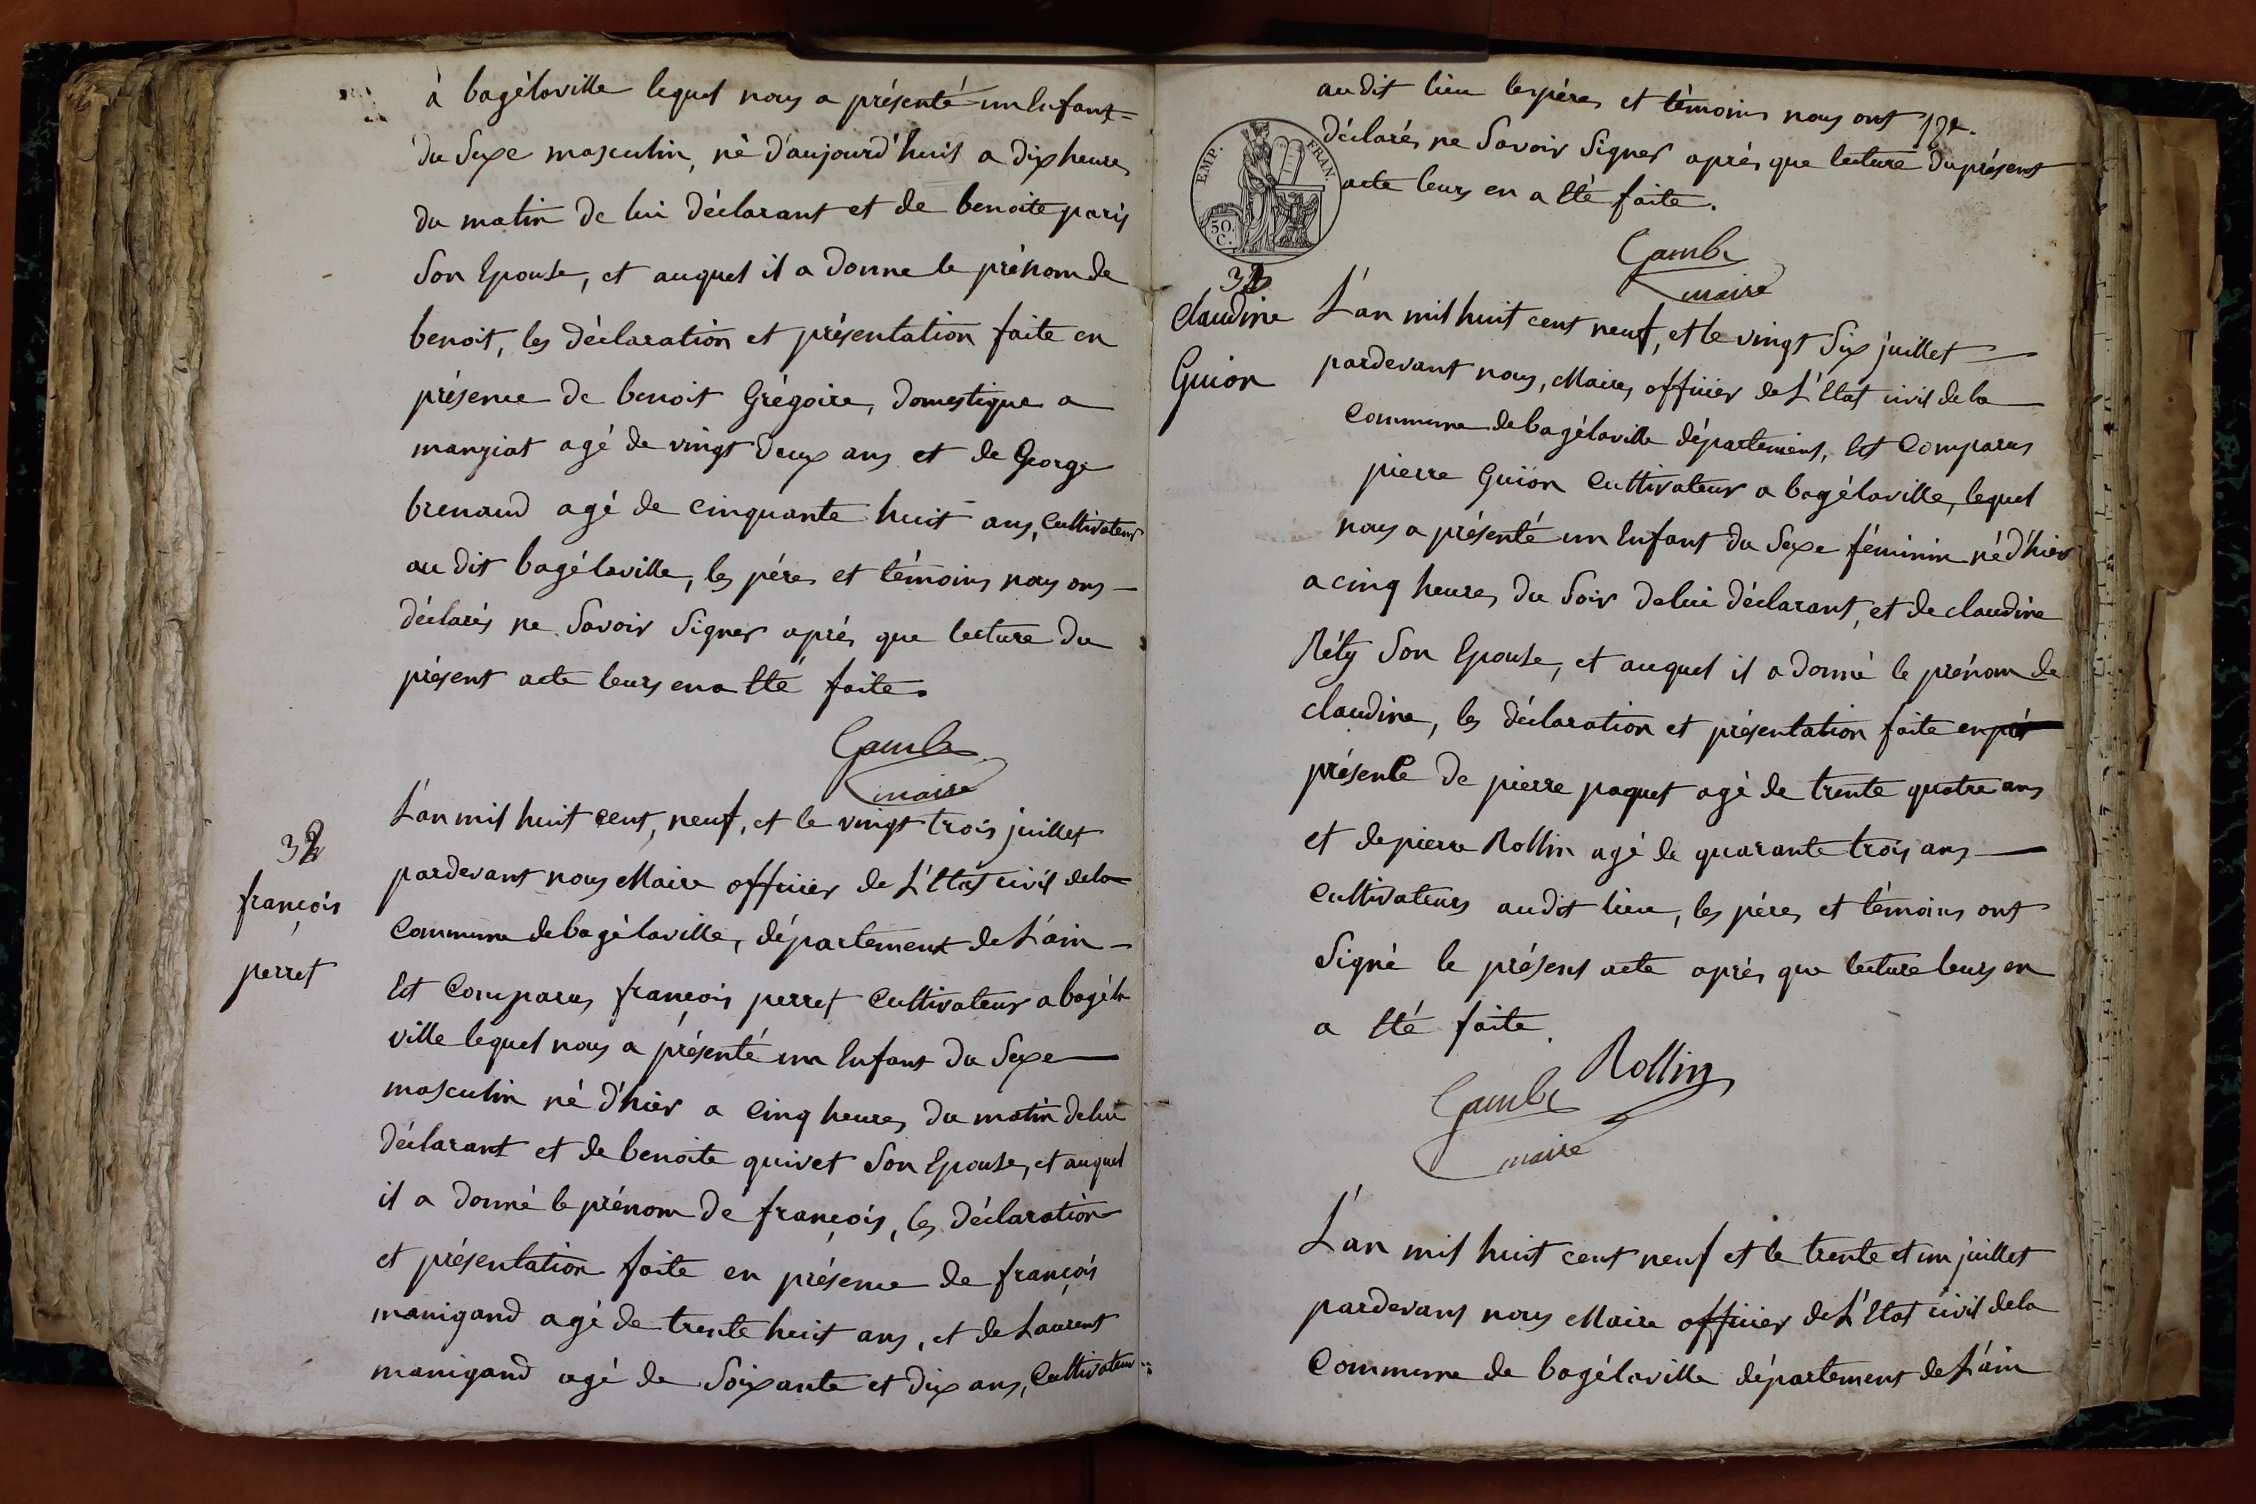 à bagélaville lequel nous a présenté un Enfant
du Sexe masculin, né d'aujourd'huit a dix heures
du matin de lui déclarant et de benoite paris
Son Epouse, et auquel il a donne le prénom de
benoit, les déclaration et présentation faite en
présence de benoit Grégoire, domestique a
manziat agé de vingt deux ans et de George
brenaud agé de cinquante huit ans, cultivateurs
au dit bagélaville, les péres et témoins nous ons
déclarés ne Savoir Signer aprés que lecture du
présent acte leurs en a Eté faite.
Gambe
maire
32
françois
perret
L'an mil huit cent, neuf, et le vingt trois juillet
pardevant nous Maire officier de L'Etat civil de la
Commune de bagélaville, département de L'ain
Est Comparus françois perret Cultivateur a bagéla
ville lequel nous a présenté un Enfant du Sexe
masculin né d'hier a cinq heures du matin de lui
déclarant et de benoite quivet Son Epouse, et auquel
il a donné le prénom de françois, les déclaration
et présentation faite en présence de françois
manigand agé de trente huit ans, et de Laurent
manigand agé de Soixante et dix ans, Cultivateurs
au dit lieu les péres et témoins nous ont
déclarés ne Savoir Signer aprés que lecture du présent
acte leurs en a Eté faite.
Gambe
maire
EMP. FRAN.
50.
C.
Claudine
Guion
L'an mil huit cent neuf, et le vingt Six juillet
pardevant nous, Maire, officier de L'Etat civil de la
Commune de bagélaville département, Est Comparus
pierre Guion Cultivateur a bagélaville, lequel
nous a présenté un Enfant du Sexe féminin né d'hier
a cinq heures du Soir de lui déclarant, et de claudine
Réty Son Epouse, et auquel il a donné le prénom de
claudine, les déclaration et présentation faite en
présence de pierre paquet agé de trente quatre ans
et de pierre Rollin agé de quarante trois ans
Cultivateurs au dit lieu, les péres et témoins ont
Signé le présent acte aprés que lecture leurs en
a Eté faite.
Rollin
Gambe
maire
L'an mil huit cent neuf et le trente et un juillet
pardevant nous Maire officier de L'Etat civil de la
Commune de bagélaville département de L'ain